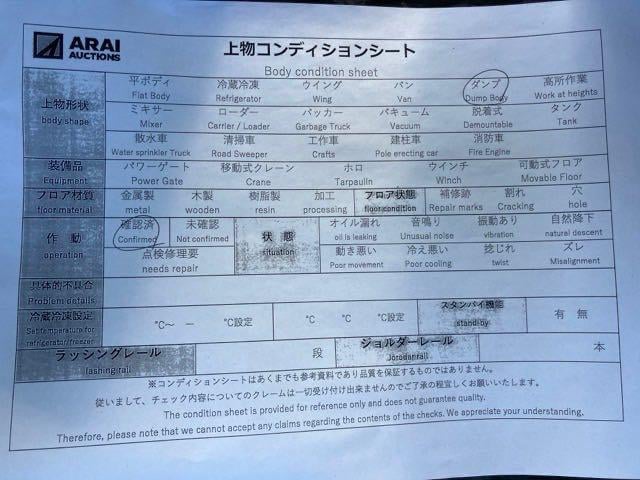 ARAI
AUCTIONS
上物コンディションシート
Body condition sheet
上物形状
body shape
平ボディ 冷蔵冷凍 ウイング バン ダンプ 高所作業
Flat Body Refrigerator Wing Van Dump Body Work at heights
ミキサー ローダー パッカー バキューム 脱着式 タンク
Mixer Carrier / Loader Garbage Truck Vacuum Demountable Tank
散水車 清掃車 工作車 建柱車 消防車
Water sprinkler Truck Road Sweeper Crafts Pole erecting car Fire Engine
装備品 パワーゲート 移動式クレーン ホロ ウインチ 可動式フロア
Equipment Power Gate Crane Tarpaulin Winch Movable Floor
フロア材質 金属製 木製 樹脂製 加工 フロア状態 補修跡 割れ 穴
floor material metal wooden resin processing floor condition Repair marks Cracking hole
作 動
operation
確認済 未確認
Confirmed Not confirmed
点検修理要
needs repair
状 態
situation
オイル漏れ 音鳴り 振動あり 自然降下
oil is leaking Unusual noise vibration natural descent
動き悪い 冷え悪い 捻じれ ズレ
Poor movement Poor cooling twist Misalignment
具体的不具合
Problem details
冷蔵冷凍設定
Set temperature for
refrigerator/freezer
℃～ ー ℃設定 ℃ ℃ ℃設定
スタンバイ機能
stand-by
有 無
ラッシングレール 段 ジョルダーレール 本
lashing rail Jorodanrail
※コンディションシートはあくまでも参考資料であり品質を保証するものではありません。
従いまして、チェック内容についてのクレームは一切受け付け出来ませんのでご了承の程宜しくお願いいたします。
The condition sheet is provided for reference only and does not guarantee quality.
Therefore, please note that we cannot accept any claims regarding the contents of the checks. We appreciate your understanding.